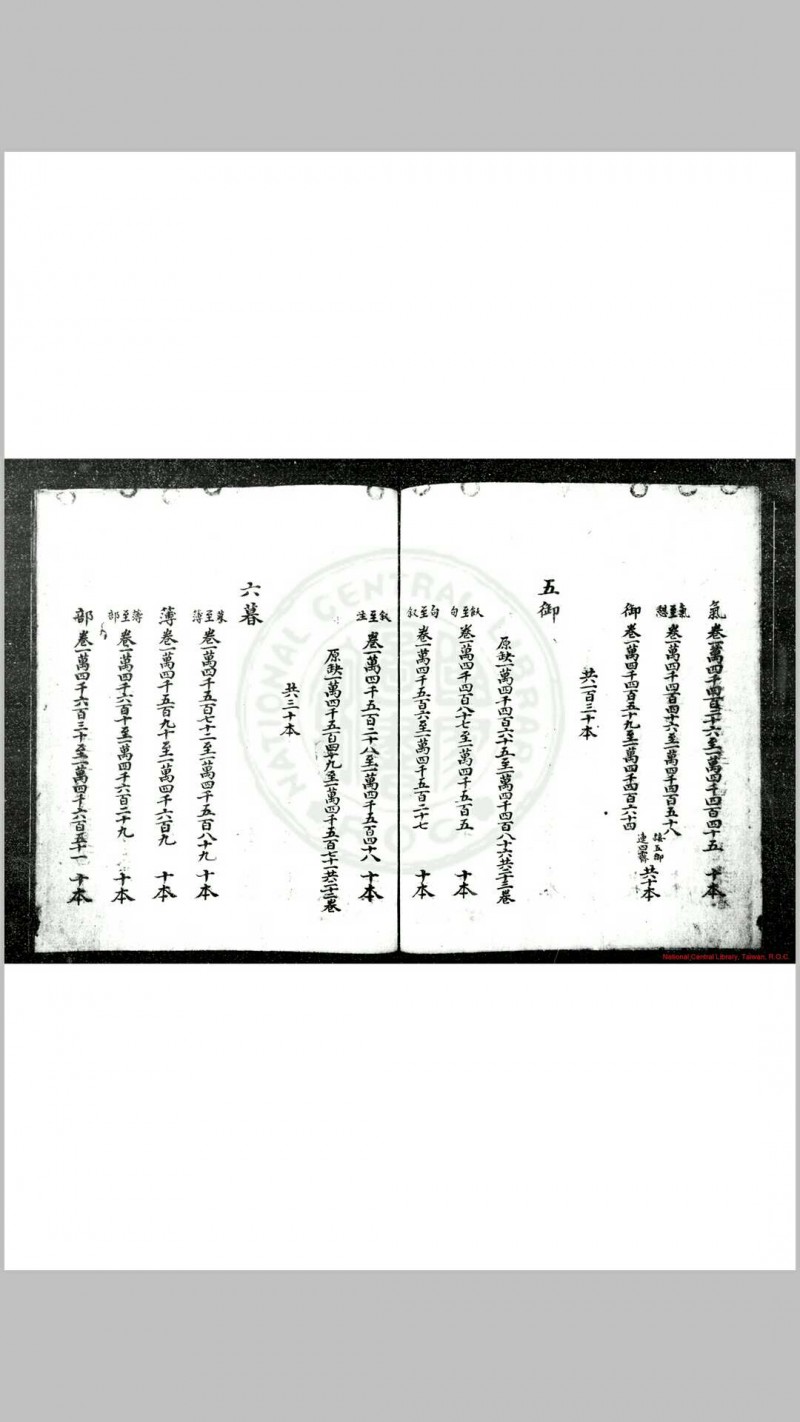 氣 卷一萬四千四百二十六至一萬四千四百四十五 十本
氣至憩 卷一萬四千四百四十六至一萬四千四百五十八
御 卷一萬四千四百五十九至一萬四千四百六十四 接五御連四霽 共十本
共一百三十本
五御
原缺一萬四千四百六十五至一萬四千四百八十六共二十三卷
飫至句 卷一萬四千四百八十七至一萬四千五百五 十本
句至敘 卷一萬四千五百六至一萬四千五百二十七 十本
敘至注 卷一萬四千五百二十八至一萬四千五百四十八 十本
原缺一萬四千五百四十九至一萬四千五百七十一共二十三卷
共三十本
六暮
至簿 卷一萬四千五百七十二至一萬四千五百八十九 十本
簿 卷一萬四千五百九十至一萬四千六百九 十本
簿至部 卷一萬四千六百十至一萬四千六百二十九 十本
部 卷一萬四千六百三十至一萬四千六百五十一 十本
NATIONAL CENTRAL LIBRARY
R.O.C.
National Central Library, Taiwan, R.O.C.